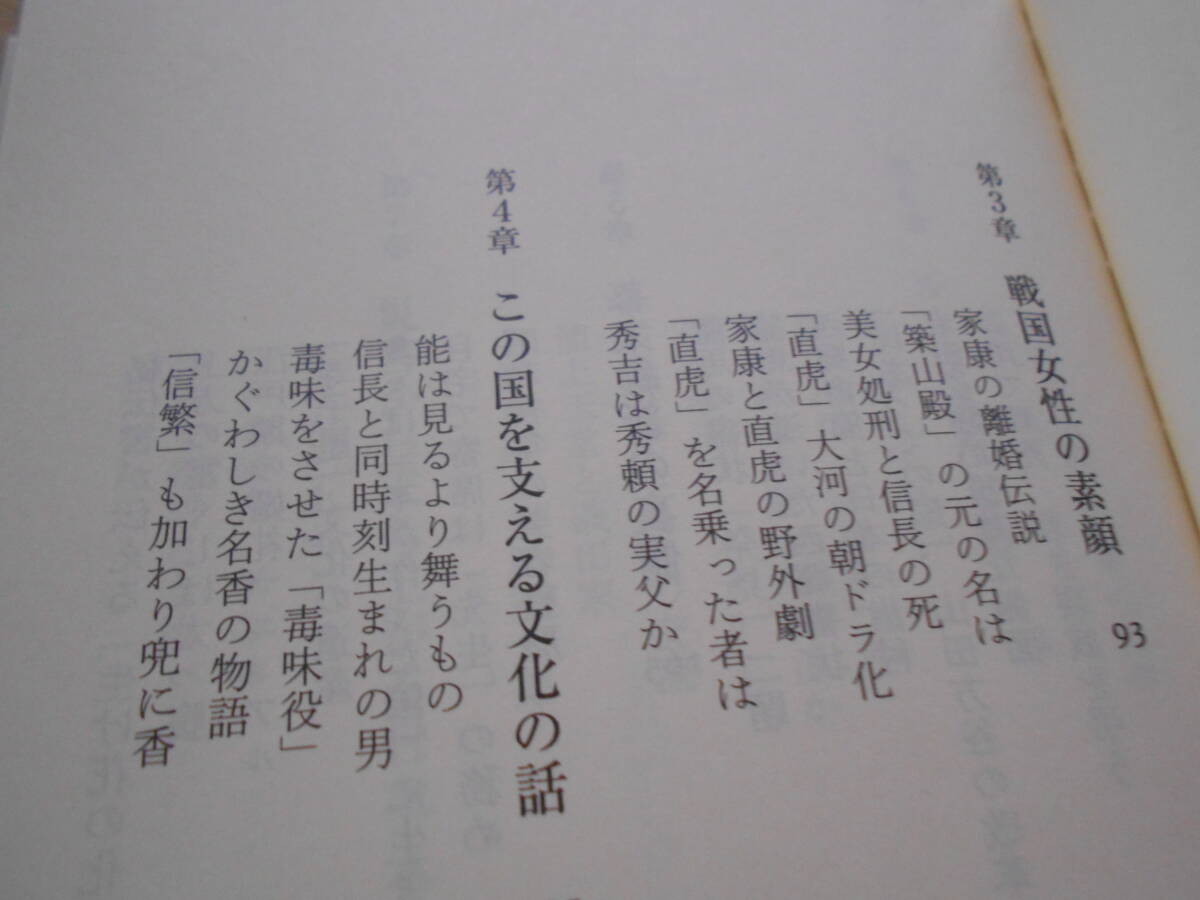 第3章 戦国女性の素顔 93
家康の離婚伝説
「築山殿」の元の名は
美女処刑と信長の死
「直虎」大河の朝ドラ化
家康と直虎の野外劇
「直虎」を名乗った者は
秀吉は秀頼の実父か
第4章 この国を支える文化の話
能は見るより舞うもの
信長と同時刻生まれの男
毒味をさせた「毒味役」
かぐわしき名香の物語
「信繁」も加わり兜に香